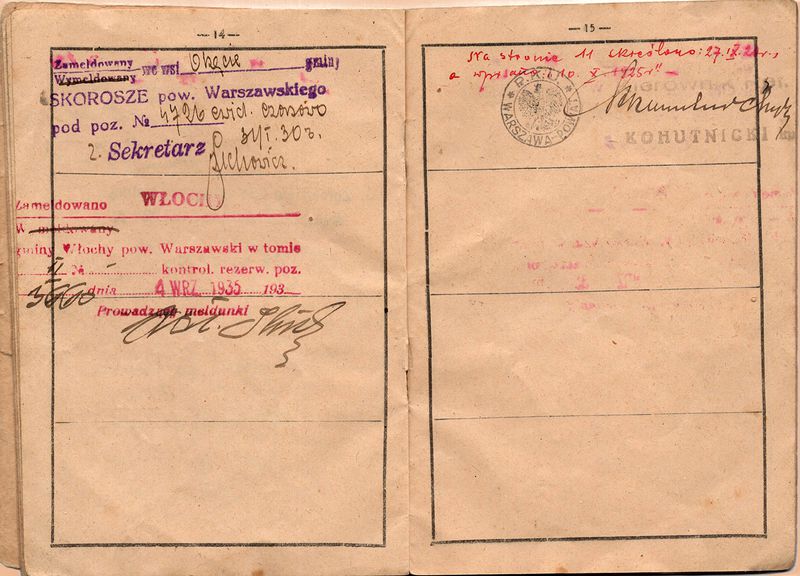 — 14 —
Zameldowany
Wymeldowany we wsi Okęcie gminy
SKOROSZE pow. Warszawskiego
pod poz. № 4726 ewid. czasowo
31/I. 30 r.
2. Sekretarz
Zameldowano WŁOCHY
W meldowany
gminy Włochy pow. Warszawski w tomie
II № kontrol. rezerw. poz.
5660 dnia 4 WRZ. 1935 193
Prowadzący meldunki
— 15 —
Na stronie 11 skreślono: 27.IX.24 r.,
a wpisano: "10. X. 1925 r"
P.K.U.
WARSZAWA-POW.
KOHUTNICKI